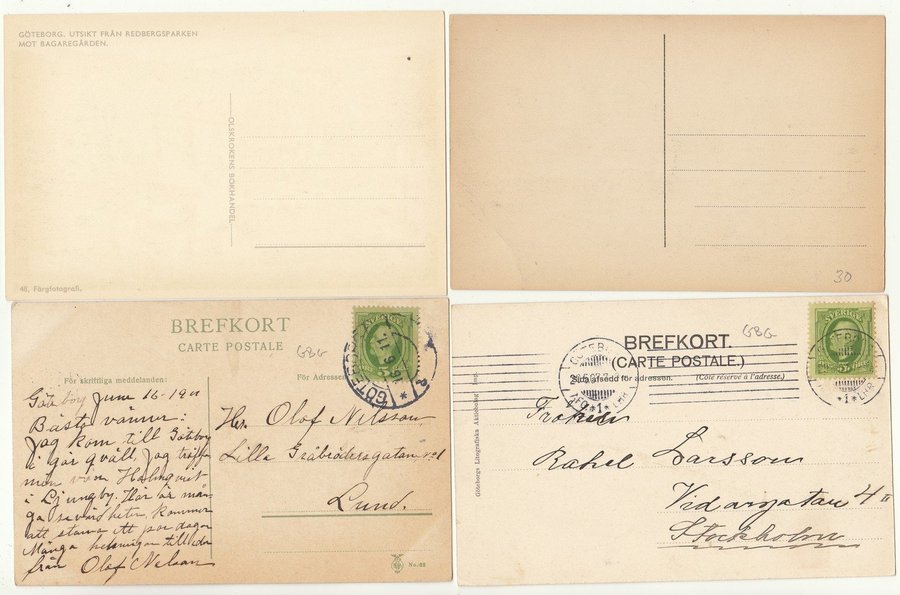 GÖTEBORG. UTSIKT FRÅN REDBERGSPARKEN
MOT BAGAREGÅRDEN.
OLSKROKENS BOKHANDEL
48, Färgfotografi.
30
BREFKORT
CARTE POSTALE
GBG
För skriftliga meddelanden:
För Adressen
GÖTEBORG
16 6 11
SVERIGE
Göteborg June 16-1911
Bästa vänner:
Jag kom till Göteborg
i går qväll. Jag träffa
men vän Holmqvist
i Ljungby. Här är mån
ga sevärdheter, kommer
att stanna ett par dagar
Många helsningar till eder
från Olof Nelson
Her. Olof Nilsson
Lilla Gråbrödersgatan No 1
Lund.
No. 68
BREFKORT.
(CARTE POSTALE.)
GBG
Sida afsedd för adressen.
(Côté réservé à l'adresse.)
GÖTEBORG
*1*
LBR
SVERIGE
*1*
LBR
Göteborgs Litografiska Aktiebolag
Fröken
Rakel Larsson
Vidargatan 4 II
Stockholm